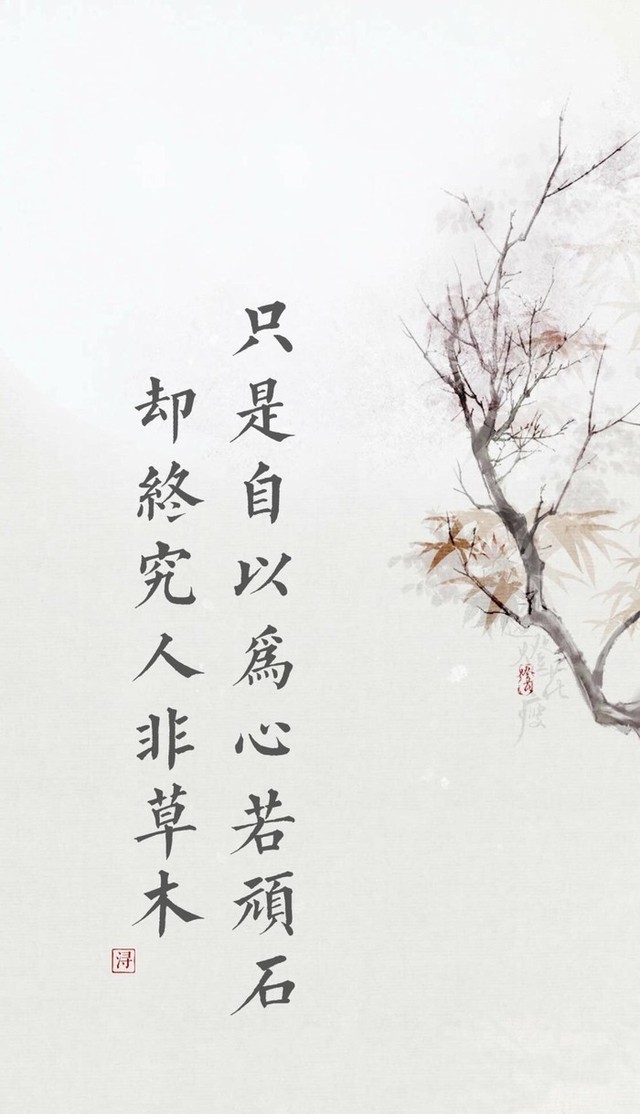 只是自以為心若頑石
却終究人非草木
浔